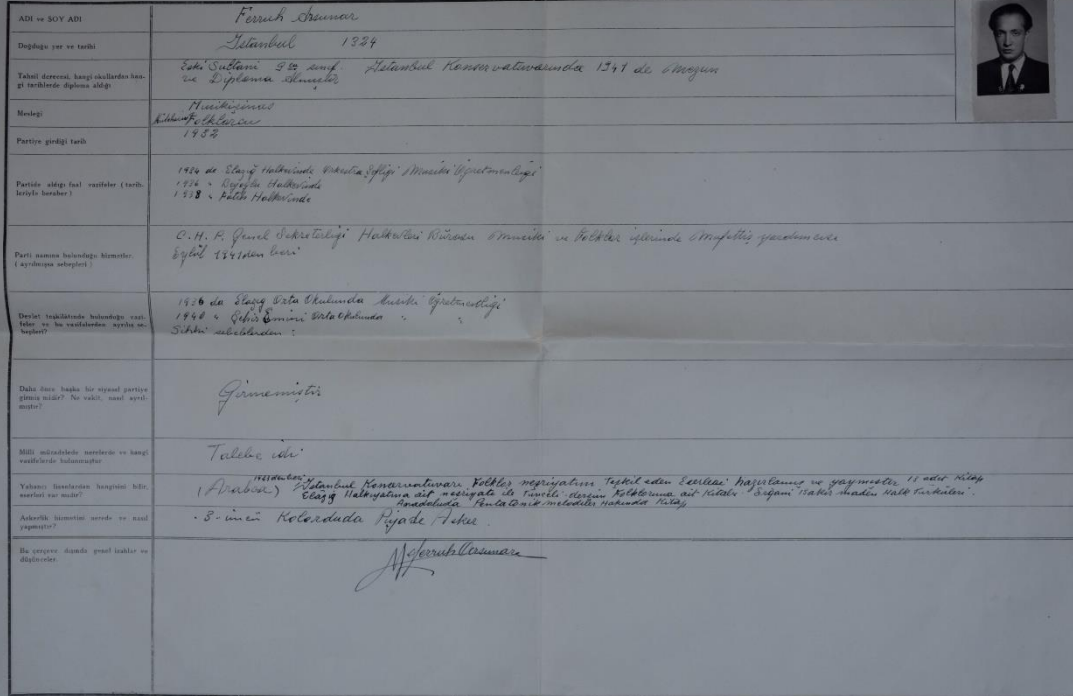 ADI ve SOY ADI
Ferruh Arsunar
Doğduğu yer ve tarihi
İstanbul 1324
Tahsil derecesi, hangi okullardan han-
gi tarihlerde diploma aldığı
Eski Sultani 9 sınıf. İstanbul Konservatuvarında 1941 de Mezun
ve Diploma Almıştır
Mesleği
Musikişinas
Folklorcu
Partiye girdiği tarih
1932
Partide aldığı faal vazifeler (tarih-
leriyle beraber)
1934 de Elazığ Halkevinde Orkestra Şefliği Musiki Öğretmenliği
1936 " Beyoğlu Halkevinde
1938 " Fatih Halkevinde
Parti namına bulunduğu hizmetler.
(ayrılmışsa sebepleri)
C.H.P. Genel Sekreterliği Halkevleri Bürosu Musiki ve Folklor işlerinde Müfettiş yardımcısı
Eylûl 1941den beri
Devlet teşkilâtında bulunduğu vazi-
feler ve bu vazifelerden ayrılış se-
bepleri?
1936 da Elazığ Orta Okulunda Musiki Öğretmenliği
1940 " Şehir Emini Orta Okulunda " "
Sıhhi sebeblerden :
Daha önce başka bir siyasî partiye
girmiş midir? Ne vakit, nasıl ayrıl-
mıştır?
Girmemiştir
Millî mücadelede nerelerde ve hangi
vazifelerde bulunmuştur
Talebe idi
Yabancı lisanlardan hangisini bilir,
eserleri var mıdır?
(Arabca) İstanbul Konservatuvarı Folklor neşriyatını Teşkil eden Eserleri hazırlamış ve yaymıştır 11 adet Kitap
Elâzığ Halkıyatına ait neşriyatı ile Tunceli-dersim Folkloruna ait Kitabı - Ergani Bakır maden Halk Türküleri.
Anadoluda Pentatonik melodiler Hakkında Kitap
Askerlik hizmetini nerede ve nasıl
yapmıştır?
3-üncü Kolorduda Piyade Asker.
Bu çerçeve dışında genel izahlar ve
düşünceler.
Ferruh Arsunar